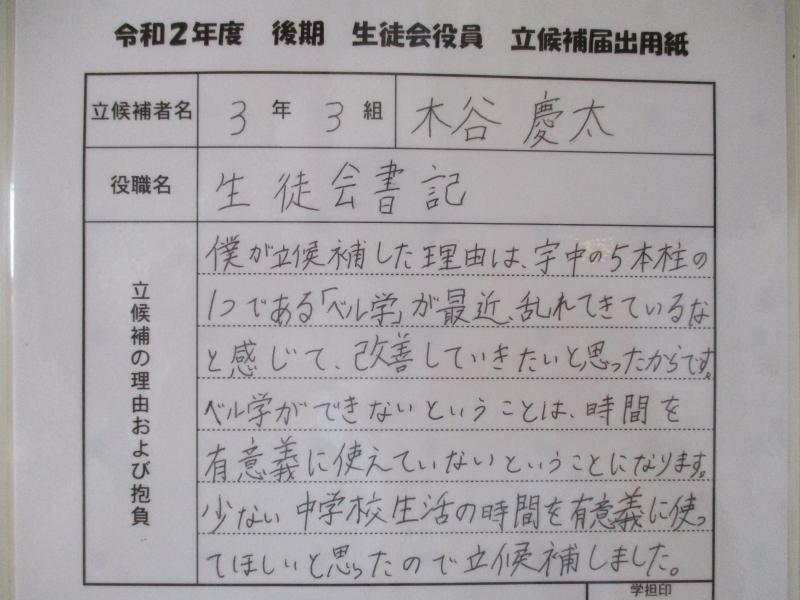 令和2年度 後期 生徒会役員 立候補届出用紙
立候補者名 3年 3組 木谷 慶太
役職名 生徒会書記
立候補の理由および抱負
僕が立候補した理由は、宇中の5本柱の
1つである「ベル学」が最近、乱れてきているな
と感じて、改善していきたいと思ったからです。
ベル学ができないということは、時間を
有意義に使えていないということになります。
少ない中学校生活の時間を有意義に使っ
てほしいと思ったので立候補しました。
学担印